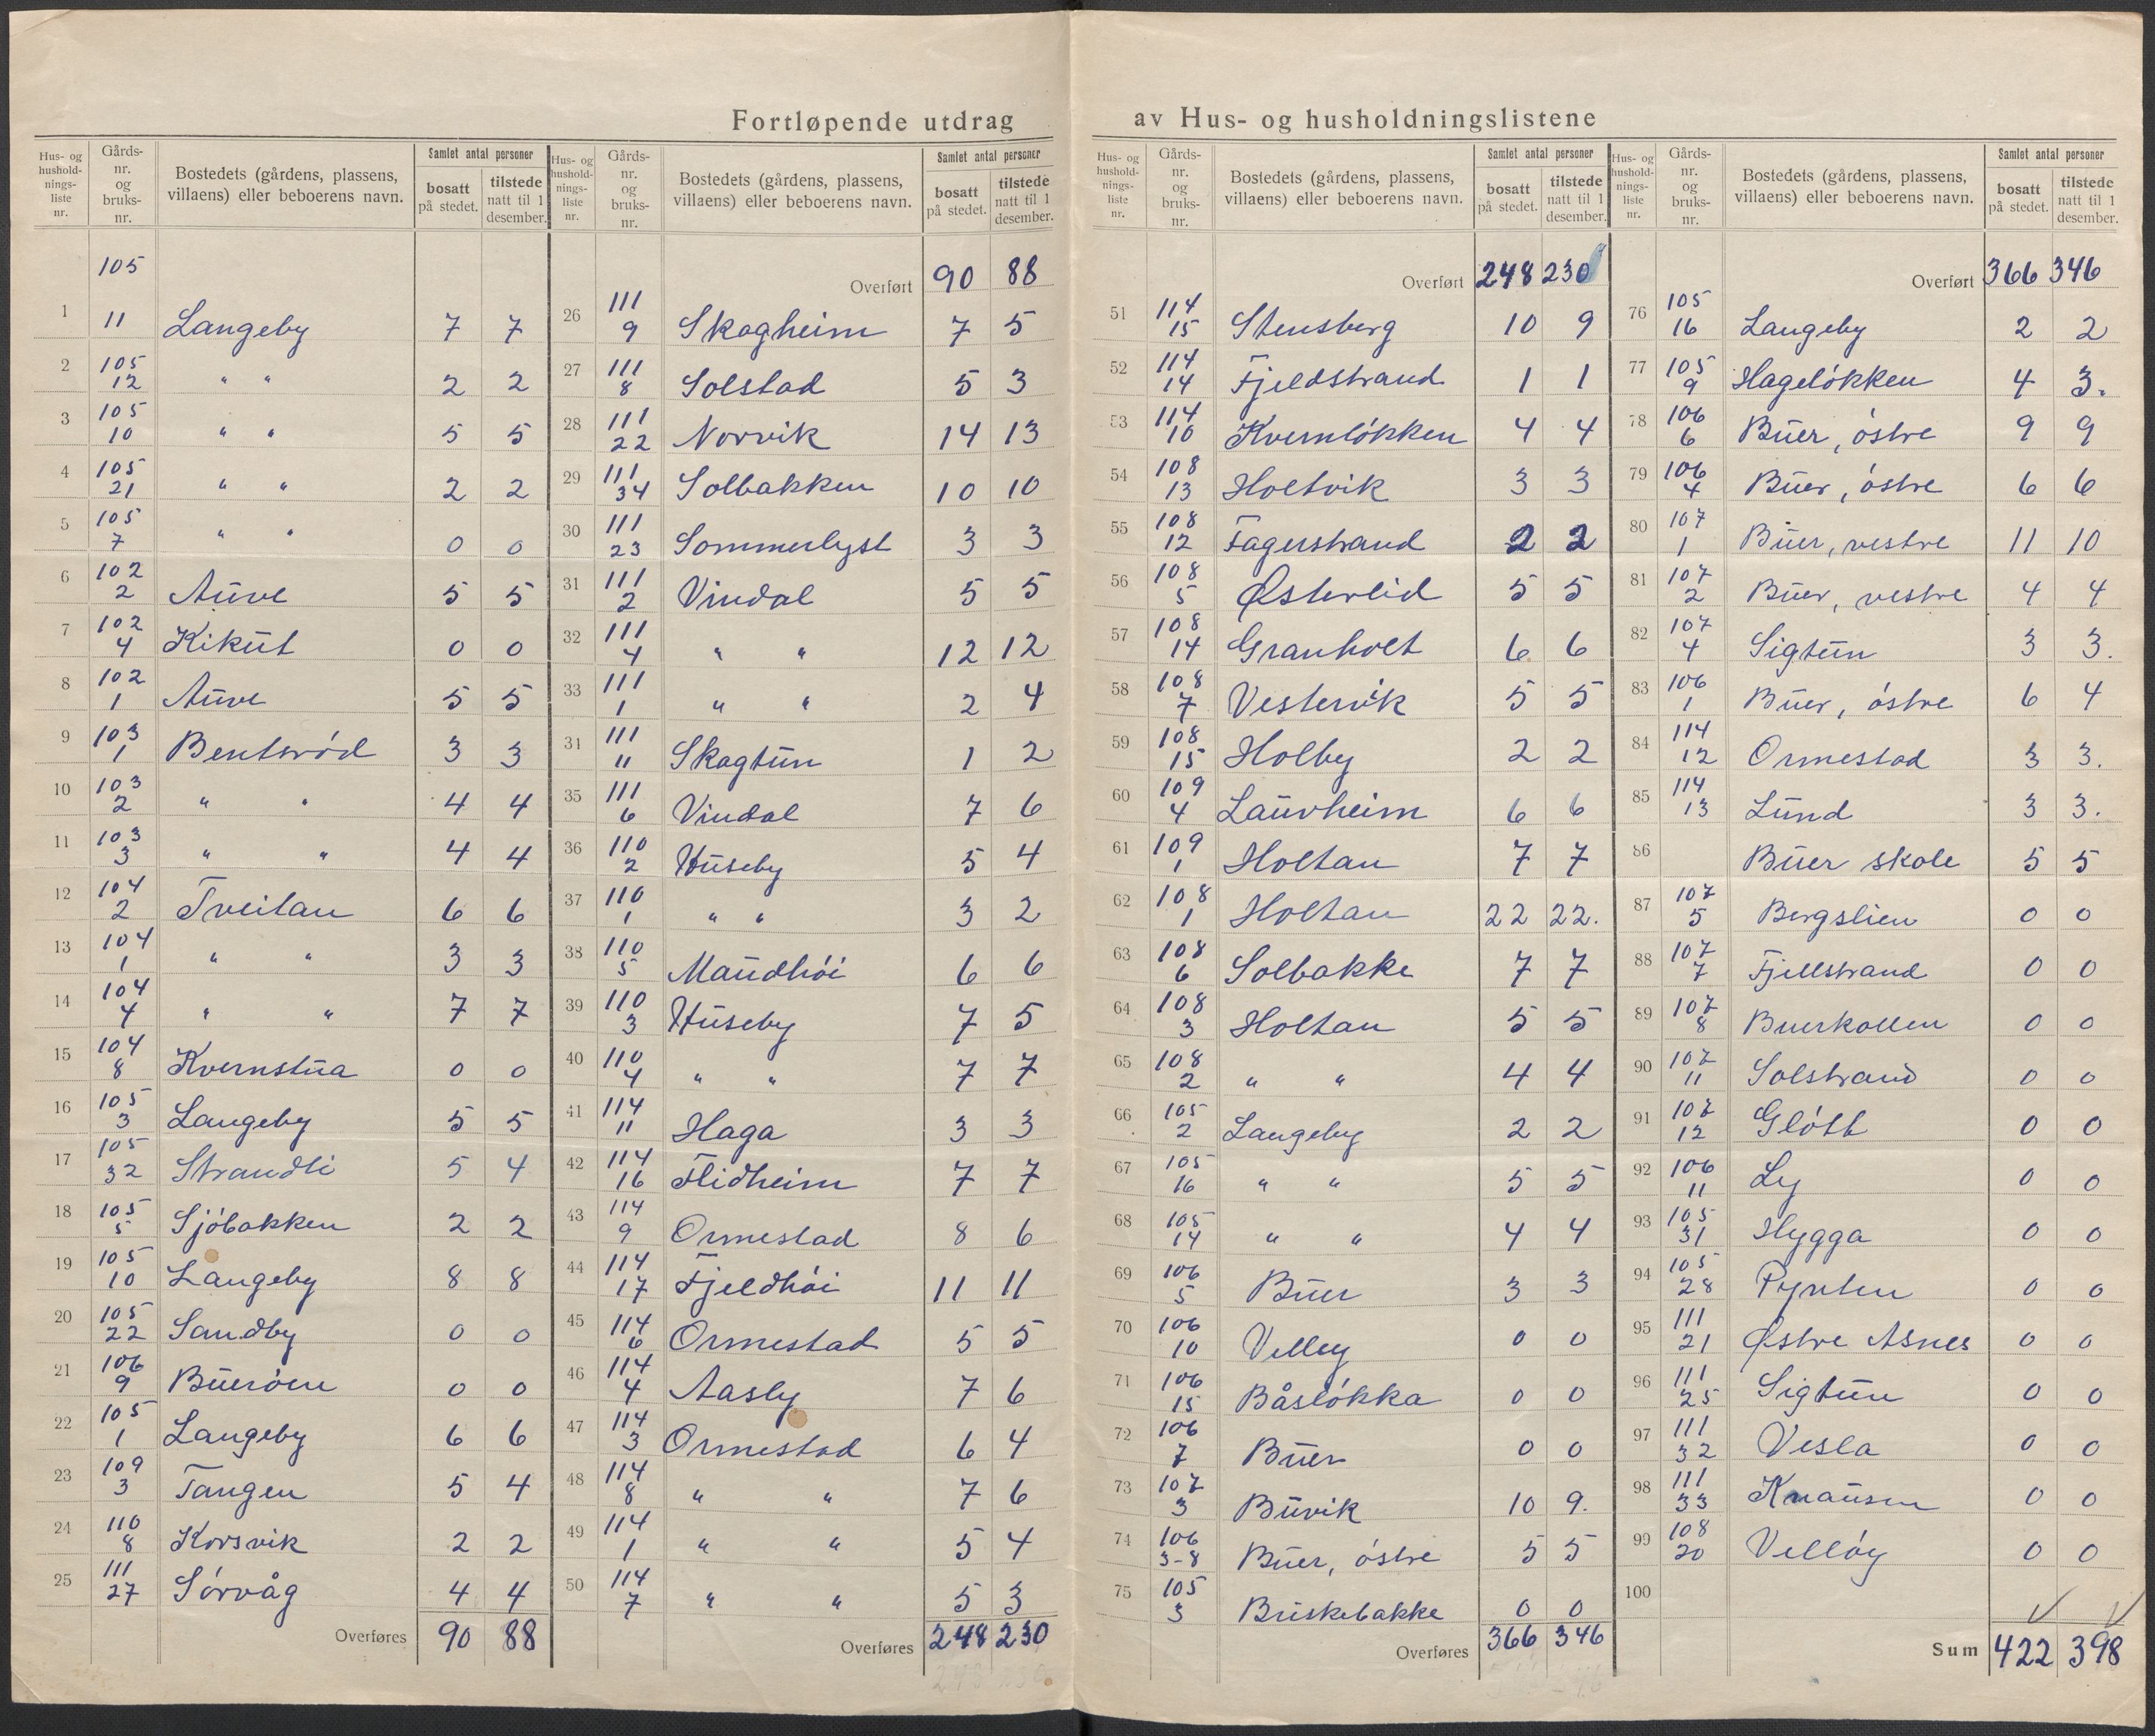 Fortløpende utdrag av Hus- og husholdningslistene
Hus- og husholdnings-liste nr. | Gårds-nr. og bruks-nr. | Bostedets (gårdens, plassens, villaens) eller beboerens navn. | Samlet antal personer bosatt på stedet. | tilstede natt til 1 desember.
1 105 11 Langeby 7 7
2 105 12 " " 2 2
3 105 10 " " 5 5
4 105 21 " " 2 2
5 105 7 " " 0 0
6 102 2 Auve 5 5
7 102 4 Kikut 0 0
8 102 1 Auve 5 5
9 103 1 Bentsrød 3 3
10 103 2 " " 4 4
11 103 3 " " 4 4
12 104 2 Tveitan 6 6
13 104 1 " " 3 3
14 104 4 " " 7 7
15 104 8 Kvernstua 0 0
16 105 3 Langeby 5 5
17 105 32 Strandli 5 4
18 105 5 Sjöbakken 2 2
19 105 10 Langeby 8 8
20 105 22 Sandby 0 0
21 106 9 Bueröen 0 0
22 105 1 Langeby 6 6
23 109 3 Tangen 5 4
24 110 8 Korsvik 2 2
25 111 27 Sörvåg 4 4
Overføres 90 88
Hus- og husholdnings-liste nr. | Gårds-nr. og bruks-nr. | Bostedets (gårdens, plassens, villaens) eller beboerens navn. | Samlet antal personer bosatt på stedet. | tilstede natt til 1 desember.
Overført 90 88
26 111 9 Skogheim 7 5
27 111 8 Solstad 5 3
28 111 22 Norvik 14 13
29 111 34 Solbakken 10 10
30 111 23 Sommerlyst 3 3
31 111 2 Vindal 5 5
32 111 4 " " 12 12
33 111 1 " " 2 4
31 111 11 Skogtun 1 2
35 111 6 Vindal 7 6
36 110 2 Huseby 5 4
37 110 1 " " 3 2
38 110 5 Maudhöi 6 6
39 110 3 Huseby 7 5
40 110 4 " " 7 7
41 114 11 Haga 3 3
42 114 16 Flidheim 7 7
43 114 9 Ormestad 8 6
44 114 17 Fjeldhöi 11 11
45 114 6 Ormestad 5 5
46 114 4 Aasly 7 6
47 114 3 Ormestad 6 4
48 114 8 " " 7 6
49 114 1 " " 5 4
50 114 7 " " 5 3
Overføres 248 230
Hus- og husholdnings-liste nr. | Gårds-nr. og bruks-nr. | Bostedets (gårdens, plassens, villaens) eller beboerens navn. | Samlet antal personer bosatt på stedet. | tilstede natt til 1 desember.
Overført 248 230
51 114 15 Stensberg 10 9
52 114 14 Fjeldstrand 1 1
53 114 10 Kvernlökken 4 4
54 108 13 Holtvik 3 3
55 108 12 Fagerstrand 2 2
56 108 5 Østerlid 5 5
57 108 14 Granholt 6 6
58 108 7 Vestervik 5 5
59 108 15 Holby 2 2
60 109 4 Laurheim 6 6
61 109 1 Holtan 7 7
62 108 1 Holtan 22 22.
63 108 6 Solbakke 7 7
64 108 3 Holtan 5 5
65 108 2 " " 4 4
66 105 2 Langeby 2 2
67 105 16 " " 5 5
68 105 14 " " 4 4
69 106 5 Buer 3 3
70 106 10 Velley 0 0
71 106 15 Båslökka 0 0
72 106 7 Buer 0 0
73 107 3 Buvik 10 9.
74 106 3-8 Buer, östre 5 5
75 105 3 Briskebakke 0 0
Overføres 366 346
Hus- og husholdnings-liste nr. | Gårds-nr. og bruks-nr. | Bostedets (gårdens, plassens, villaens) eller beboerens navn. | Samlet antal personer bosatt på stedet. | tilstede natt til 1 desember.
Overført 366 346
76 105 16 Langeby 2 2
77 105 9 Hagelökken 4 3.
78 106 6 Buer, östre 9 9
79 106 4 Buer, östre 6 6
80 107 1 Buer, vestre 11 10
81 107 2 Buer, vestre 4 4
82 107 4 Sigtun 3 3.
83 106 1 Buer, östre 6 4
84 114 12 Ormestad 3 3.
85 114 13 Lund 3 3.
86 Buer skole 5 5
87 107 5 Bergslien 0 0
88 107 7 Fjellstrand 0 0
89 107 8 Buerkollen 0 0
90 107 11 Solstrand 0 0
91 107 12 Glött 0 0
92 106 11 Ly 0 0
93 105 31 Hygga 0 0
94 105 28 Pynten 0 0
95 111 21 Østre Asnes 0 0
96 111 25 Sigtun 0 0
97 111 32 Vesla 0 0
98 111 33 Knausen 0 0
99 108 20 Vellöy 0 0
100
Sum 422 398